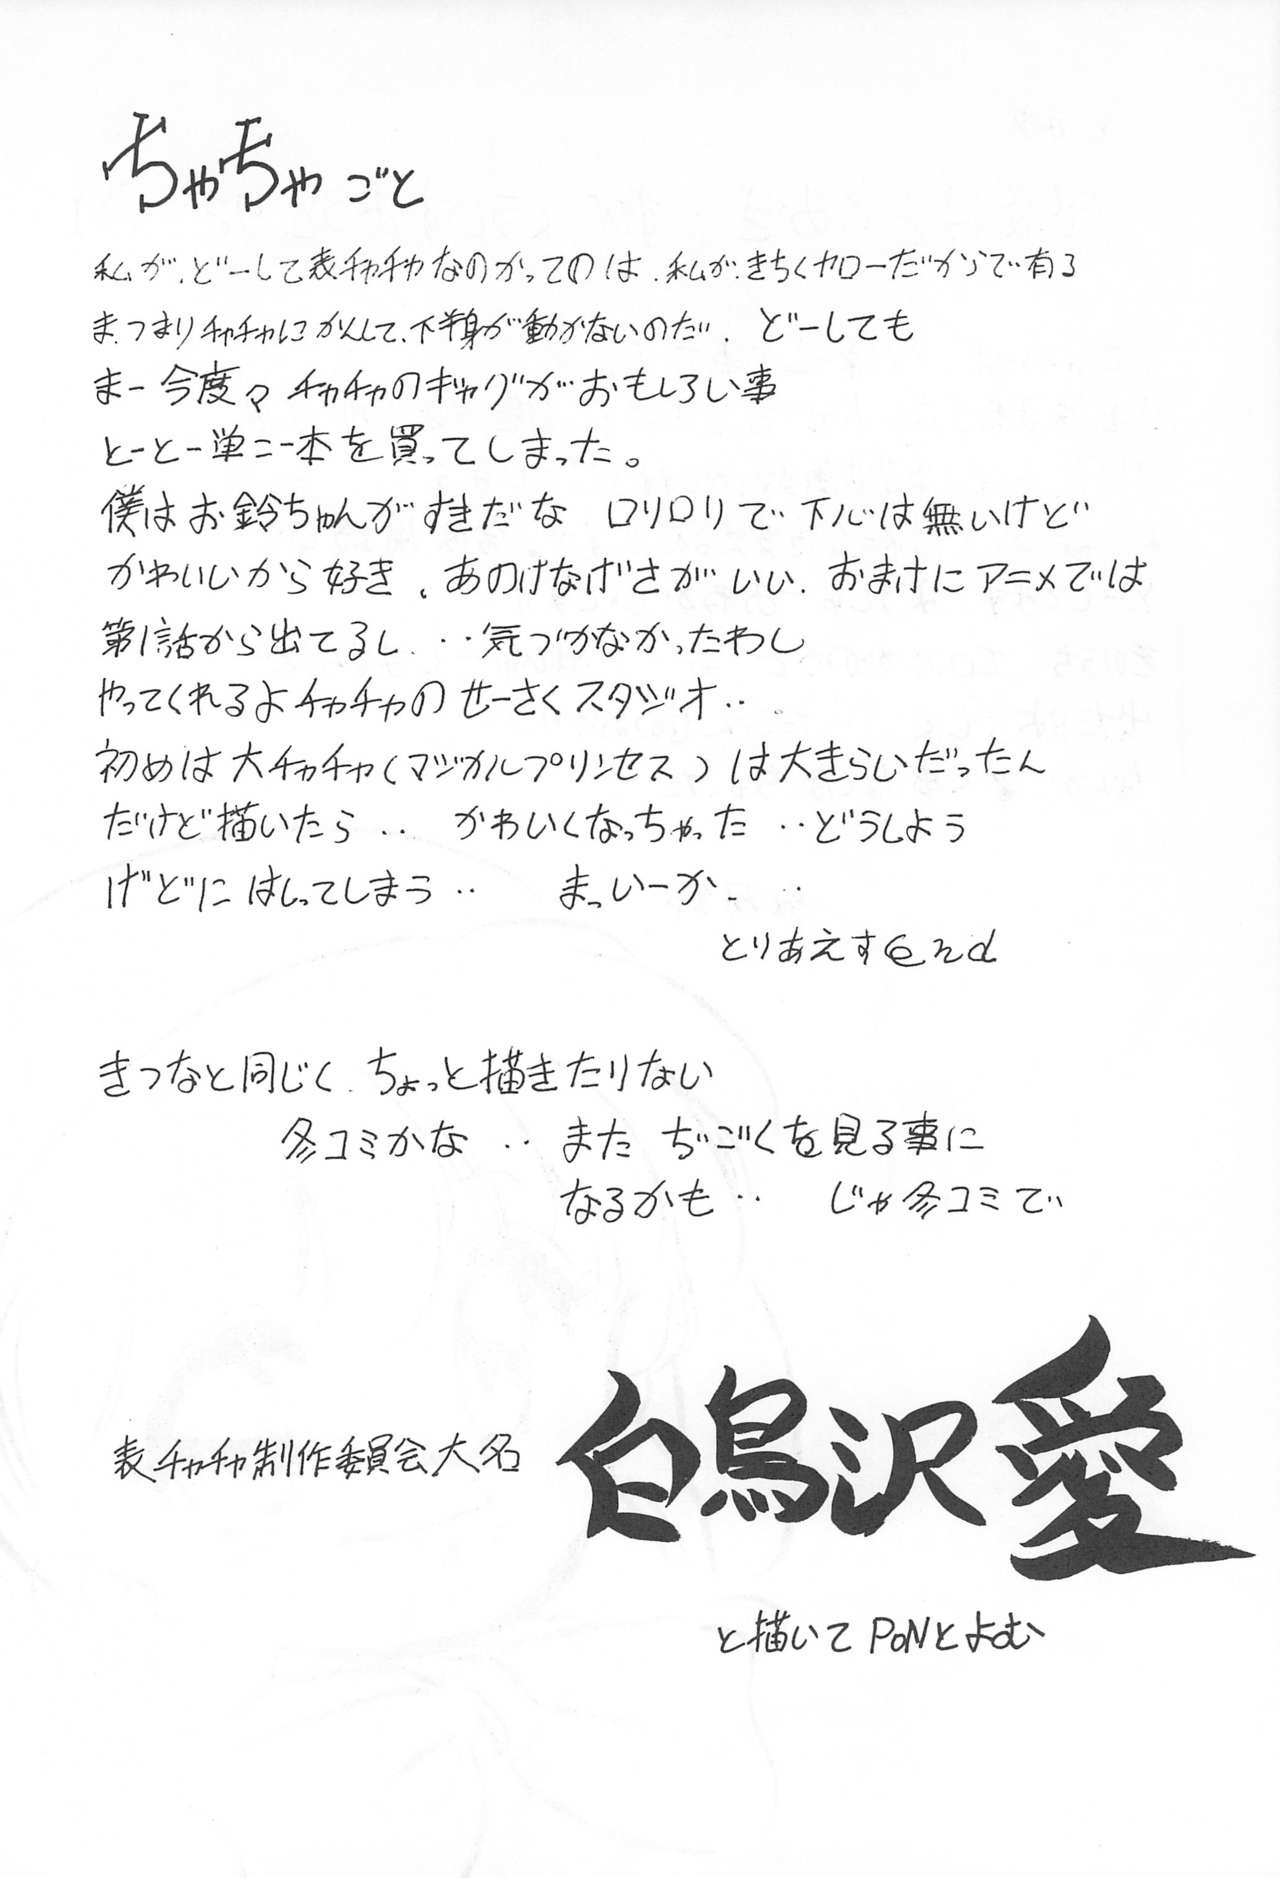 ちゃちゃごと
私が、どーして表チャチャなのかってのは、私が、きちくヤローだからで有る
まつまりチャチャにかんして、下半身が動かないのだ、どーしても
まー今度々チャチャのギャグがおもしろい事
とーとー単こー本を買ってしまった。
僕はお鈴ちゃんがすきだな ロリロリで下心は無いけど
かわいいから好き、あのけなげさがいい、おまけにアニメでは
第1話から出てるし、‥気づかなかったわし
やってくれるよチャチャのせーさくスタジオ‥
初めは大チャチャ(マジカルプリンセス)は大きらいだったん
だけど描いたら‥ かわいくなっちゃった‥どうしよう
げどにはしってしまう‥ まっいーか、‥
とりあえすend
きつなと同じく、ちょっと描きたりない
冬コミかな‥ また ぢごくを見る事に
なるかも‥ じゃ冬コミで
表チャチャ制作委員会大名 白鳥沢愛
と描いてPoNとよむ